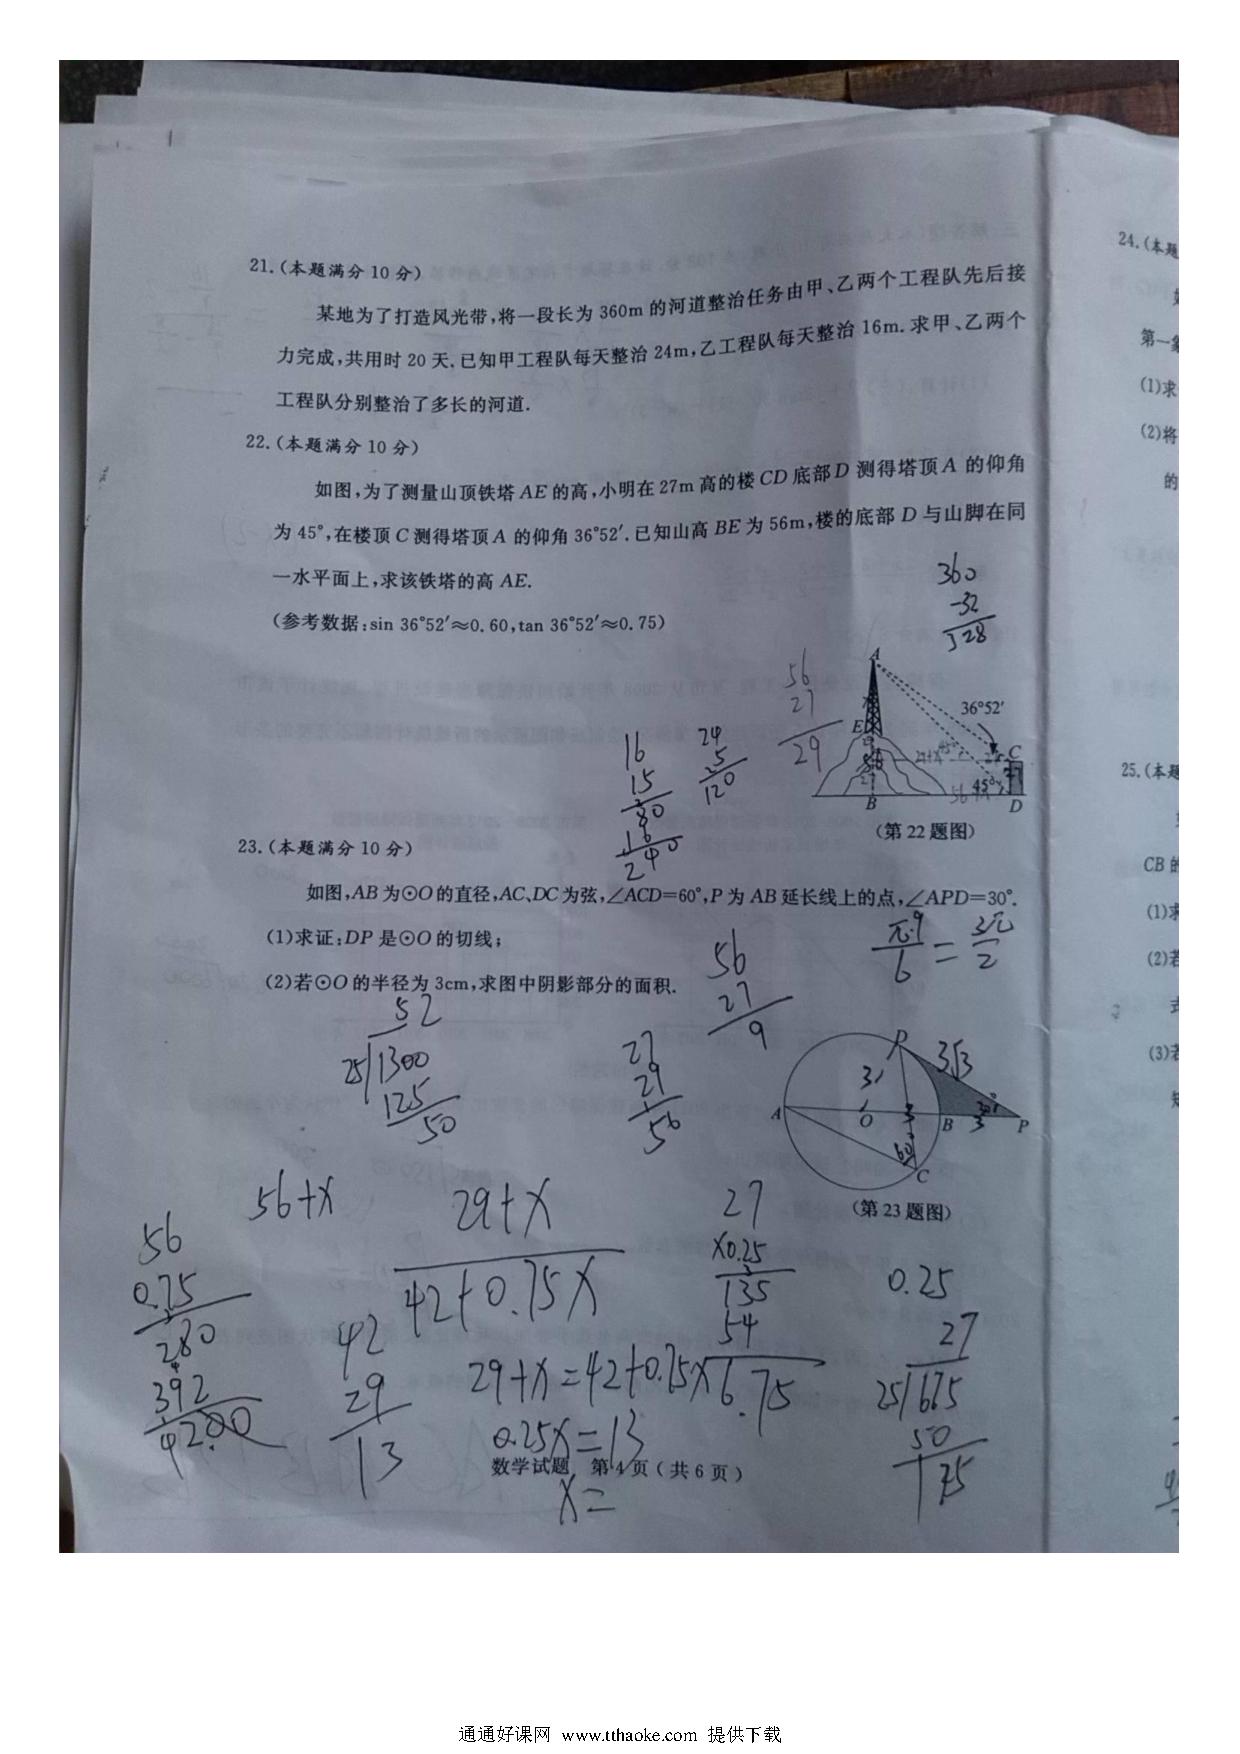 21.(本题满分10分)
某地为了打造风光带,将一段长为360m的河道整治任务由甲、乙两个工程队先后接
力完成,共用时20天.已知甲工程队每天整治24m,乙工程队每天整治16m.求甲、乙两个
工程队分别整治了多长的河道.
22.(本题满分10分)
如图,为了测量山顶铁塔AE的高,小明在27m高的楼CD底部D测得塔顶A的仰角
为45°,在楼顶C测得塔顶A的仰角36°52′.已知山高BE为56m,楼的底部D与山脚在同
一水平面上,求该铁塔的高AE.
(参考数据:sin 36°52′≈0.60,tan 36°52′≈0.75)
360
-32
328
56
27
29
16
15
80
16
240
24
5
120
A
36°52′
E
C
45°
B
D
(第22题图)
23.(本题满分10分)
如图,AB为⊙O的直径,AC、DC为弦,∠ACD=60°,P为AB延长线上的点,∠APD=30°.
(1)求证:DP是⊙O的切线;
(2)若⊙O的半径为3cm,求图中阴影部分的面积.
π·9/6=3π/2
56
27
9
52
25 1300
125
50
27
29
56
D
3√3
3
A
O
B
P
60°
C
(第23题图)
56+x
29+x
42+0.75x
56
0.75
280
392
4200
42
29
13
27
×0.25
135
54
6.75
0.25
27
25 675
50
175
29+x=42+0.75x
0.25x=13
x=
数学试题 第4页(共6页)
24.(本题
第一象
(1)求
(2)将
的
25.(本题
CB的
(1)求
(2)若
式
(3)若
通通好课网 www.tthaoke.com 提供下载